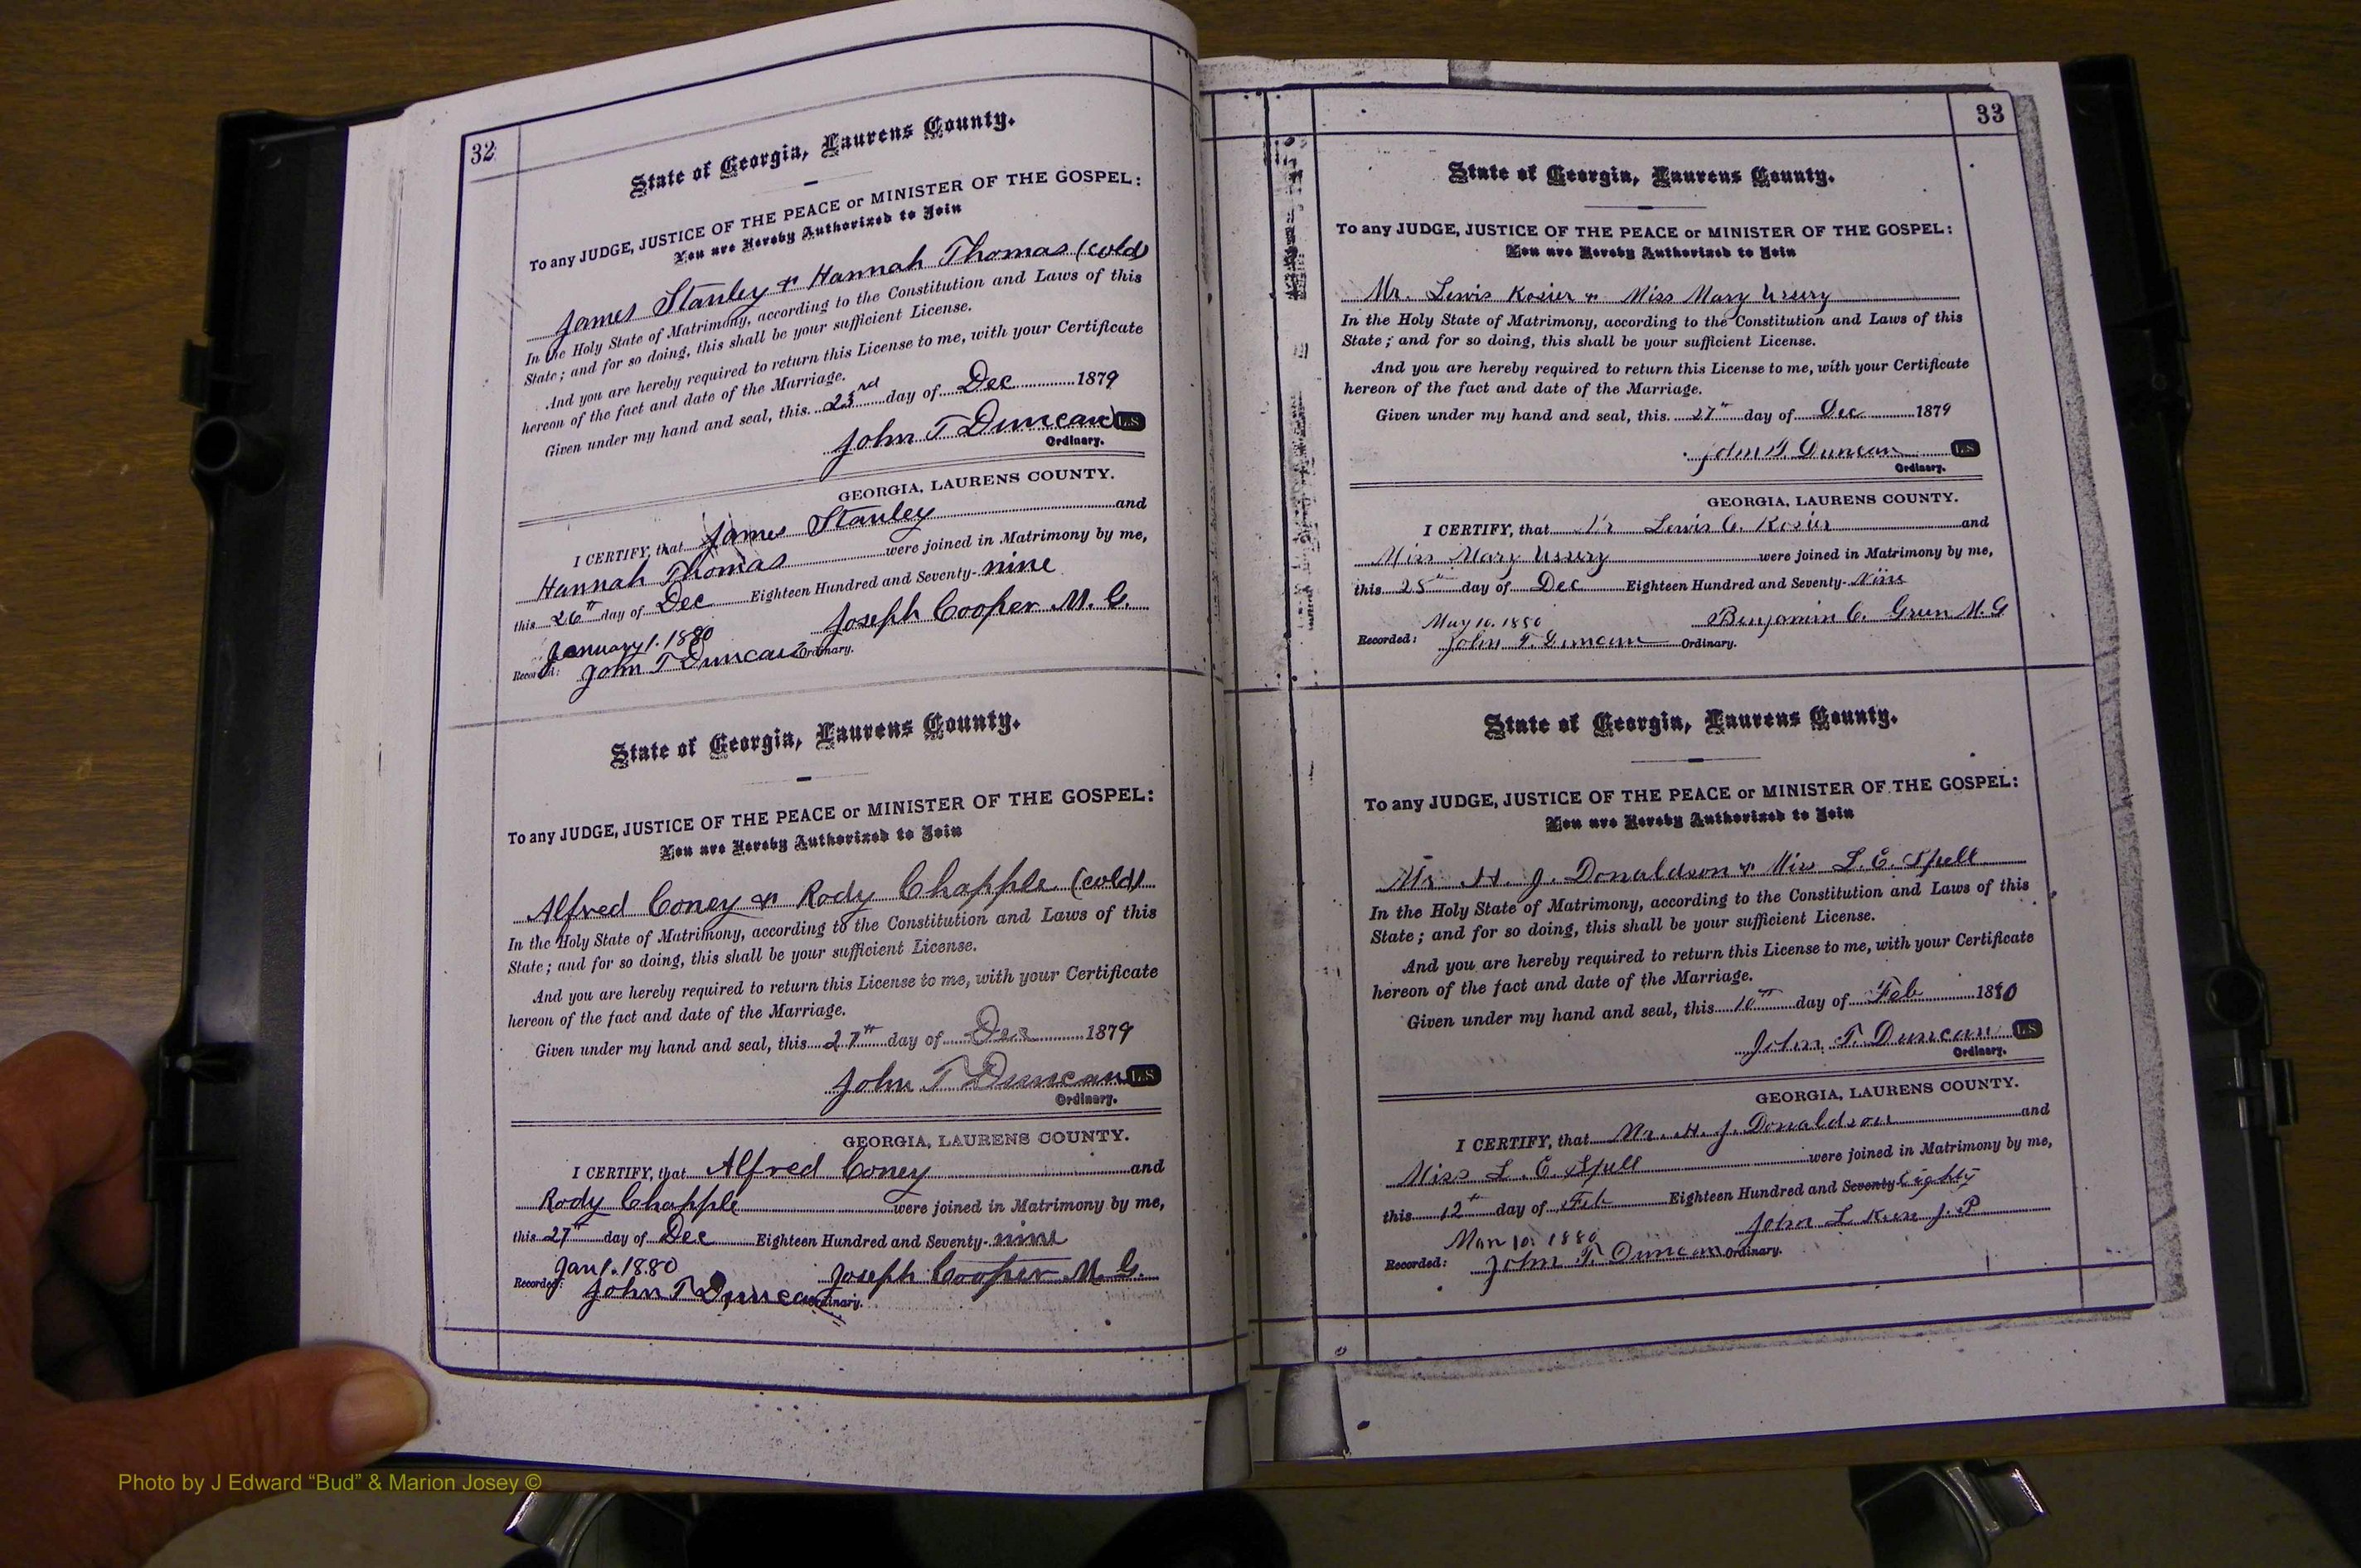 32
State of Georgia, Laurens County.
To any JUDGE, JUSTICE OF THE PEACE or MINISTER OF THE GOSPEL:
You are Hereby Authorized to Join
James Stanley & Hannah Thomas (cold)
In the Holy State of Matrimony, according to the Constitution and Laws of this
State; and for so doing, this shall be your sufficient License.
And you are hereby required to return this License to me, with your Certificate
hereon of the fact and date of the Marriage.
Given under my hand and seal, this 23rd day of Dec 1879
John T Duncan L S
Ordinary.
GEORGIA, LAURENS COUNTY.
I CERTIFY, that James Stanley and
Hannah Thomas were joined in Matrimony by me,
this 26th day of Dec Eighteen Hundred and Seventy-nine
Joseph Cooper M. G.
January 1. 1880
Recorded: John T Duncan Ordinary.
State of Georgia, Laurens County.
To any JUDGE, JUSTICE OF THE PEACE or MINISTER OF THE GOSPEL:
You are Hereby Authorized to Join
Alfred Coney & Rody Chapple (cold)
In the Holy State of Matrimony, according to the Constitution and Laws of this
State; and for so doing, this shall be your sufficient License.
And you are hereby required to return this License to me, with your Certificate
hereon of the fact and date of the Marriage.
Given under my hand and seal, this 27th day of Dec 1879
John T Duncan L S
Ordinary.
GEORGIA, LAURENS COUNTY.
I CERTIFY, that Alfred Coney and
Rody Chapple were joined in Matrimony by me,
this 27th day of Dec Eighteen Hundred and Seventy-nine
Jan 1. 1880 Joseph Cooper M. G.
Recorded: John T Duncan Ordinary.
33
State of Georgia, Laurens County.
To any JUDGE, JUSTICE OF THE PEACE or MINISTER OF THE GOSPEL:
You are Hereby Authorized to Join
Mr. Lewis Kosier & Miss Mary Ussery
In the Holy State of Matrimony, according to the Constitution and Laws of this
State; and for so doing, this shall be your sufficient License.
And you are hereby required to return this License to me, with your Certificate
hereon of the fact and date of the Marriage.
Given under my hand and seal, this 27th day of Dec 1879
John T. Duncan L S
Ordinary.
GEORGIA, LAURENS COUNTY.
I CERTIFY, that Mr Lewis C. Kosier and
Miss Mary Ussery were joined in Matrimony by me,
this 28th day of Dec Eighteen Hundred and Seventy-Nine
Benjamin C. Green M. G
May 10. 1880
Recorded: John T. Duncan Ordinary.
State of Georgia, Laurens County.
To any JUDGE, JUSTICE OF THE PEACE or MINISTER OF THE GOSPEL:
You are Hereby Authorized to Join
Mr H. J. Donaldson & Miss L. E. Spell
In the Holy State of Matrimony, according to the Constitution and Laws of this
State; and for so doing, this shall be your sufficient License.
And you are hereby required to return this License to me, with your Certificate
hereon of the fact and date of the Marriage.
Given under my hand and seal, this 10th day of Feb 1880
John T. Duncan L S
Ordinary.
GEORGIA, LAURENS COUNTY.
I CERTIFY, that Mr. H. J. Donaldson and
Miss L. E. Spell were joined in Matrimony by me,
this 12th day of Feb Eighteen Hundred and Seventy-Eighty
John L Keen J. P
10. 1880
Recorded: John T. Duncan Ordinary.
Photo by J Edward “Bud” & Marion Josey ©